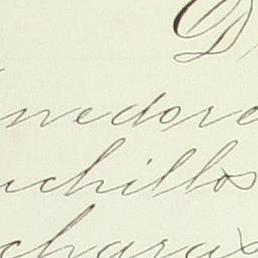 D
nedore
uchillos
charas